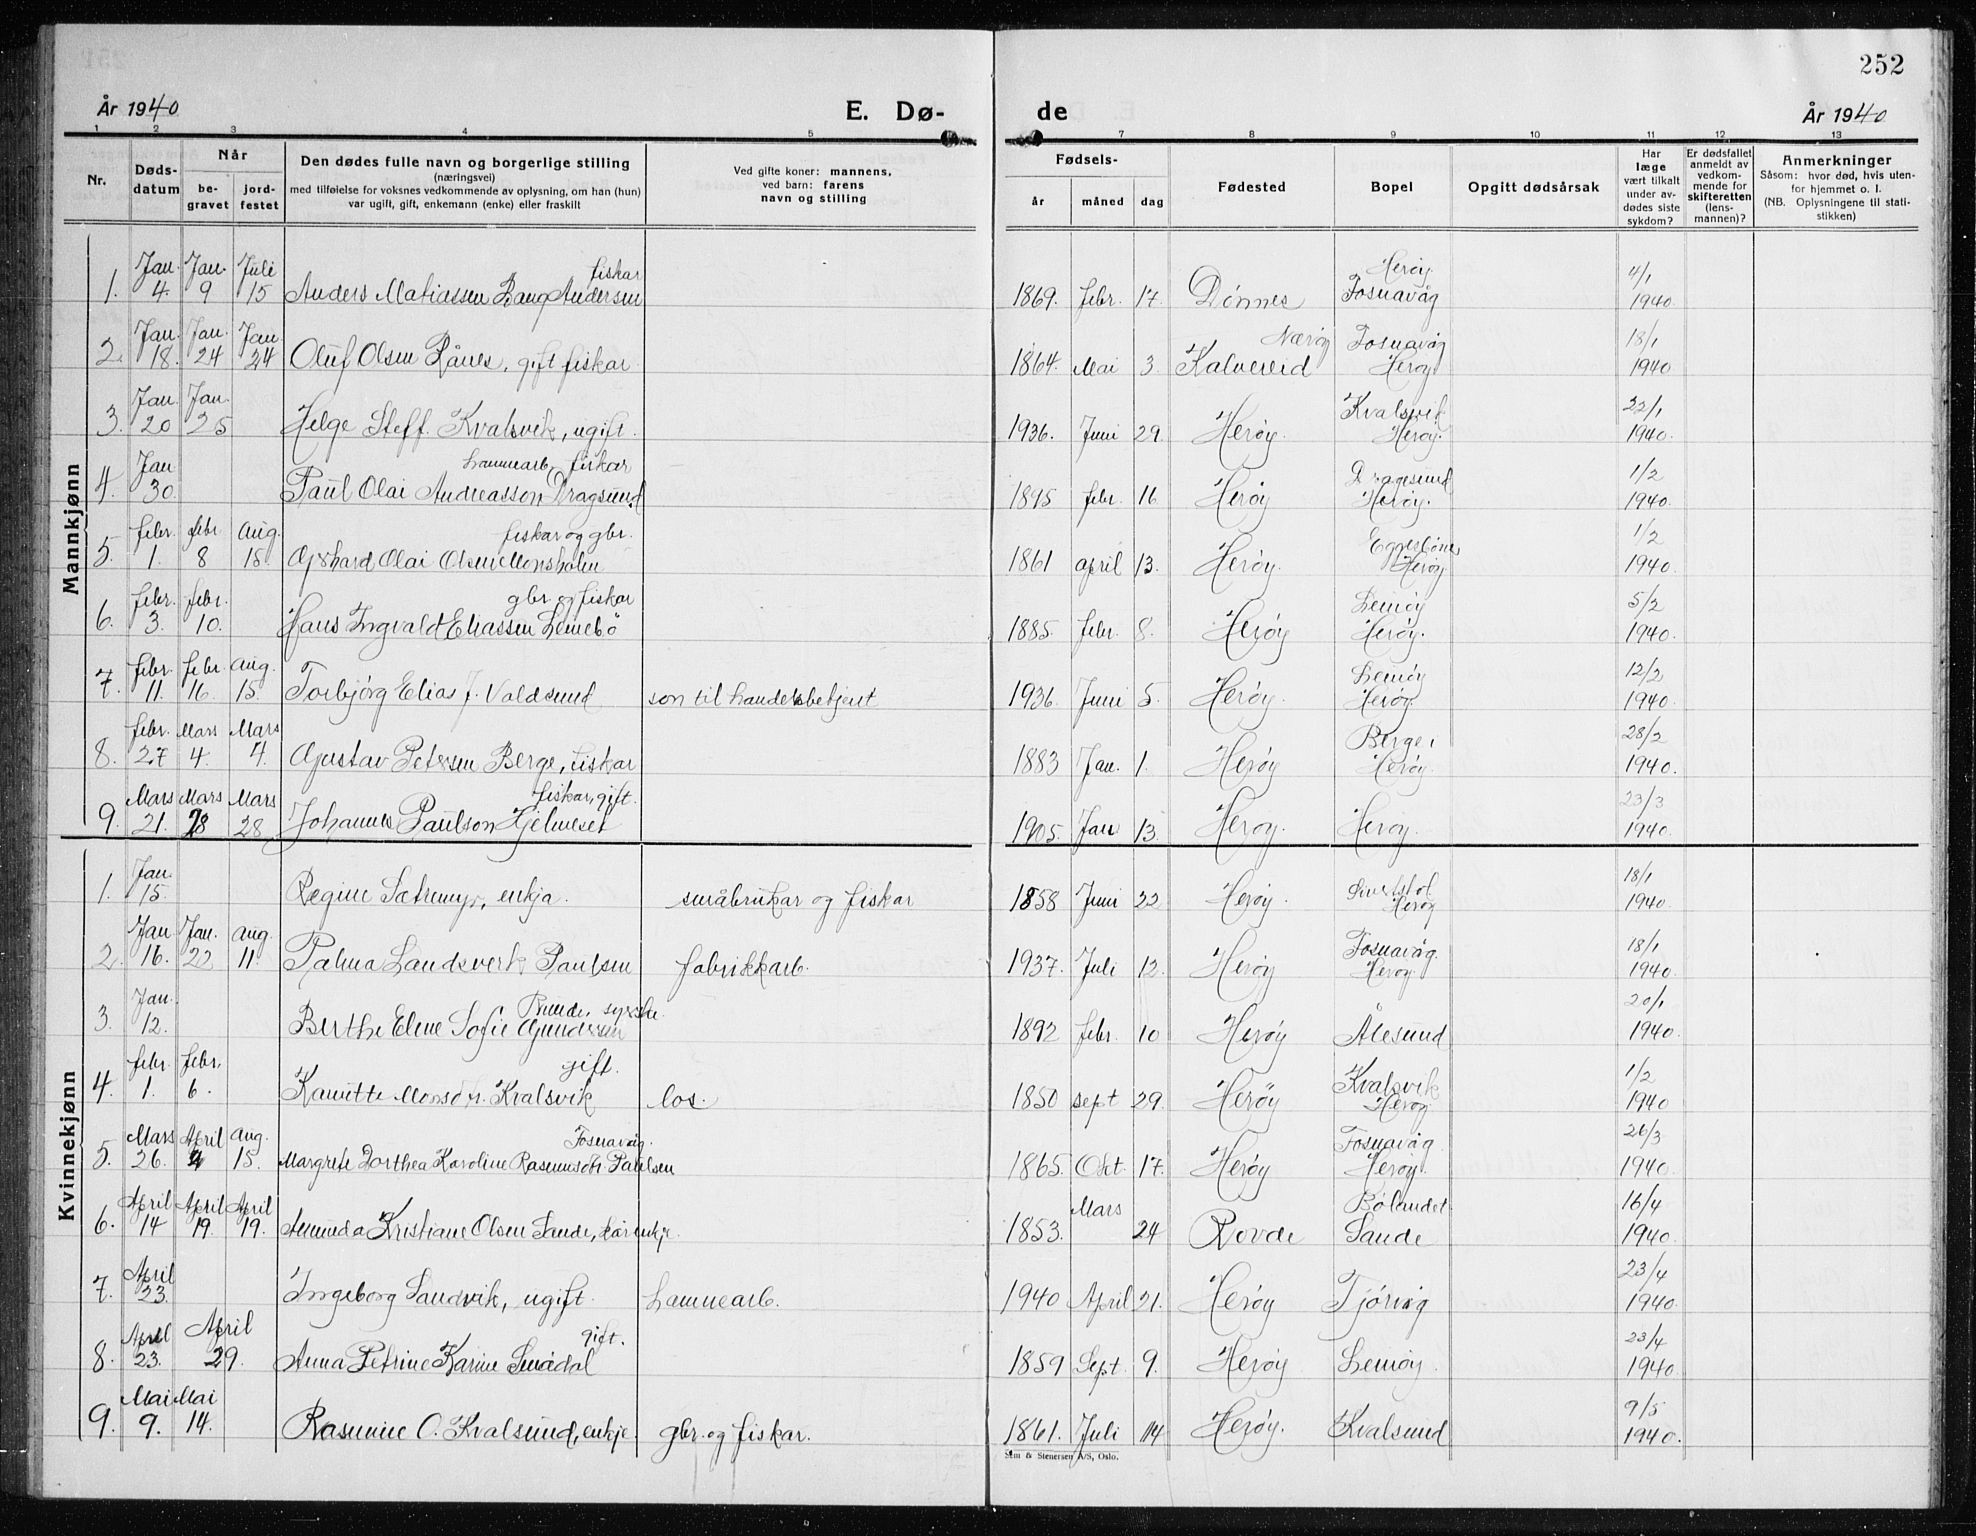 252
År 1940 E. Dø- de År 1940
1 2 3 4 5 7 8 9 10 11 12 13
Nr. Døds-datum Når be-gravet jord-festet Den dødes fulle navn og borgerlige stilling (næringsvei) med tilføielse for voksnes vedkommende av oplysning, om han (hun) var ugift, gift, enkemann (enke) eller fraskilt Ved gifte koner: mannens, ved barn: farens navn og stilling Fødsels- år måned dag Fødested Bopel Opgitt dødsårsak Har læge vært tilkalt under av-dødes siste sykdom? Er dødsfallet anmeldt av vedkom-mende for skifteretten (lens-mannen)? Anmerkninger Såsom: hvor død, hvis uten-for hjemmet o. l. (NB. Oplysningene til stati-stikken)
Mannkjønn
1. Jan. 4. Jan. 9 Juli 15 Anders Matiassen Andersen fiskar 1869. febr. 17. Dønnes Herøy. Fosnavåg 4/1 1940.
2. Jan. 18. Jan. 24 Jan 24 Oluf Olsen Rånes, gift fiskar 1864. Mai 3. Nærøy Kalvereid Fosnavåg Herøy 18/1 1940
3. Jan. 20 Jan. 25 Helge Steff. Kvalsvik, ugift. 1936. Juni 29. Herøy. Kvalsvik Herøy. 22/1 1940.
4. Jan 30. Paul Olai Andreasson Dragsund hamnearb, fiskar 1895 febr. 16 Herøy Dragesund Herøy. 1/2 1940.
5. febr. 1. febr. 8 Aug. 15. Gerhard Olai Olsen Monsholm fiskar og gbr. 1861 april 13. Herøy. Eggesbønes Herøy 1/2 1940.
6. febr. 3. febr. 10. Hans Ingvald Eliassen Leinebö gbr og fiskar 1885. febr. 8. Herøy Leinøy Herøy. 5/2 1940.
7. febr. 11. febr. 16. Aug. 15. Torbjørg Elias J. Voldsund son til handelsbetjent 1936. Juni 5. Herøy. Leinøy Herøy. 12/2 1940.
8. febr. 27 Mars 4. Mars 4. Gustav Petersen Berge, fiskar 1883 Jan. 1. Herøy Berge, Herøy. 28/2 1940.
9. Mars 21. Mars 28 Mars 28 Johannes Paulson Hjelmeset fiskar, gift. 1905. Jan 13. Herøy. Herøy. 23/3 1940.
Kvinnekjønn
1. Jan. 15. Regine Sætremyr, enkja. småbrukar og fiskar 1858 Juni 22 Herøy. Herøy 18/1 1940.
2. Jan 16. Jan. 22 Aug. 11. Palma Landsverk Paulsen fabrikkarb. 1937. Juli 12. Herøy Fosnavåg. Herøy. 18/1 1940.
3. Jan. 12. Berthe Eline Sofie Gundersen Runde, syerske. 1892 febr. 10 Herøy Ålesund 20/1 1940.
4. febr. 1. febr. 6. Kanutte Monsdtr. Kvalsvik gift. los. 1850 sept 29. Herøy Kvalsvik Herøy 1/2 1940
5. Mars 26. April 2 Aug. 15. Margrete Dorthea Karoline Rasmusdtr. Paulsen Fosnavåg. 1865. Okt. 17. Herøy Fosnavåg Herøy. 26/3 1940.
6. April 14 April 19. April 19. Amunda Kristiane Olsen Sande, kårenkje. 1853. Mars 24 Rovde Bølandet. Sande 16/4 1940.
7. April 23. Ingeborg Sandvik, ugift. hamnearb. 1940 April 21. Herøy Tjørvåg 23/4 1940.
8. April 23. April 29. Anna Petrine Karine Smådal gift. 1859 Sept. 9. Herøy. Leinøy. 23/4 1940.
9. Mai 9. Mai 14. Rasmine O. Kvalsund, enkje. gbr. og fiskar. 1861. Juli 14 Herøy. Kvalsund 9/5 1940.
Sem & Stenersen A/S, Oslo.